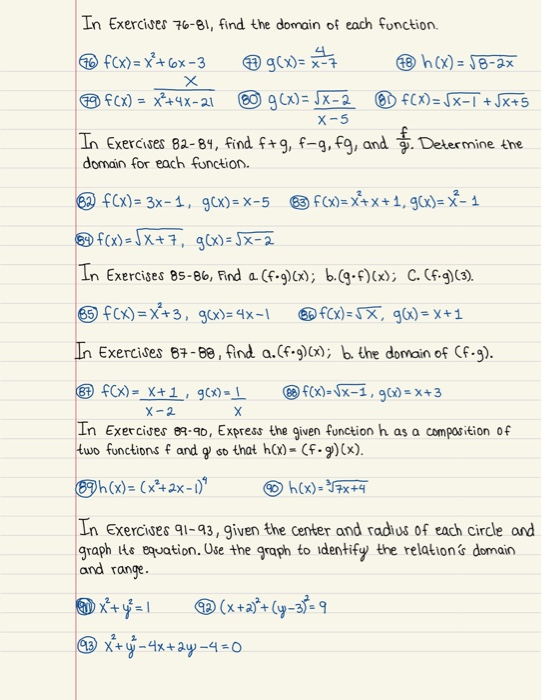 In Exercises 76-81, find the domain of each function.
76 f(x) = x²+6x-3 77 g(x) = 4/x-7 78 h(x) = √8-2x
79 f(x) = x/x²+4x-21 80 g(x) = √x-2/x-5 81 f(x) = √x-1 + √x+5
In Exercises 82-84, find f+g, f-g, fg, and f/g. Determine the
domain for each function.
82 f(x) = 3x-1, g(x) = x-5 83 f(x) = x²+x+1, g(x) = x²-1
84 f(x) = √x+7, g(x) = √x-2
In Exercises 85-86, Find a. (f∘g)(x); b. (g∘f)(x); C. (f∘g)(3).
85 f(x) = x²+3, g(x) = 4x-1 86 f(x) = √x, g(x) = x+1
In Exercises 87-88, find a. (f∘g)(x); b. the domain of (f∘g).
87 f(x) = x+1/x-2, g(x) = 1/x 88 f(x) = √x-1, g(x) = x+3
In Exercises 89-90, Express the given function h as a composition of
two functions f and g so that h(x) = (f∘g)(x).
89 h(x) = (x²+2x-1)⁴ 90 h(x) = ³√7x+4
In Exercises 91-93, given the center and radius of each circle and
graph its equation. Use the graph to identify the relation's domain
and range.
91 x²+y²=1 92 (x+2)²+(y-3)²=9
93 x²+y²-4x+2y-4=0